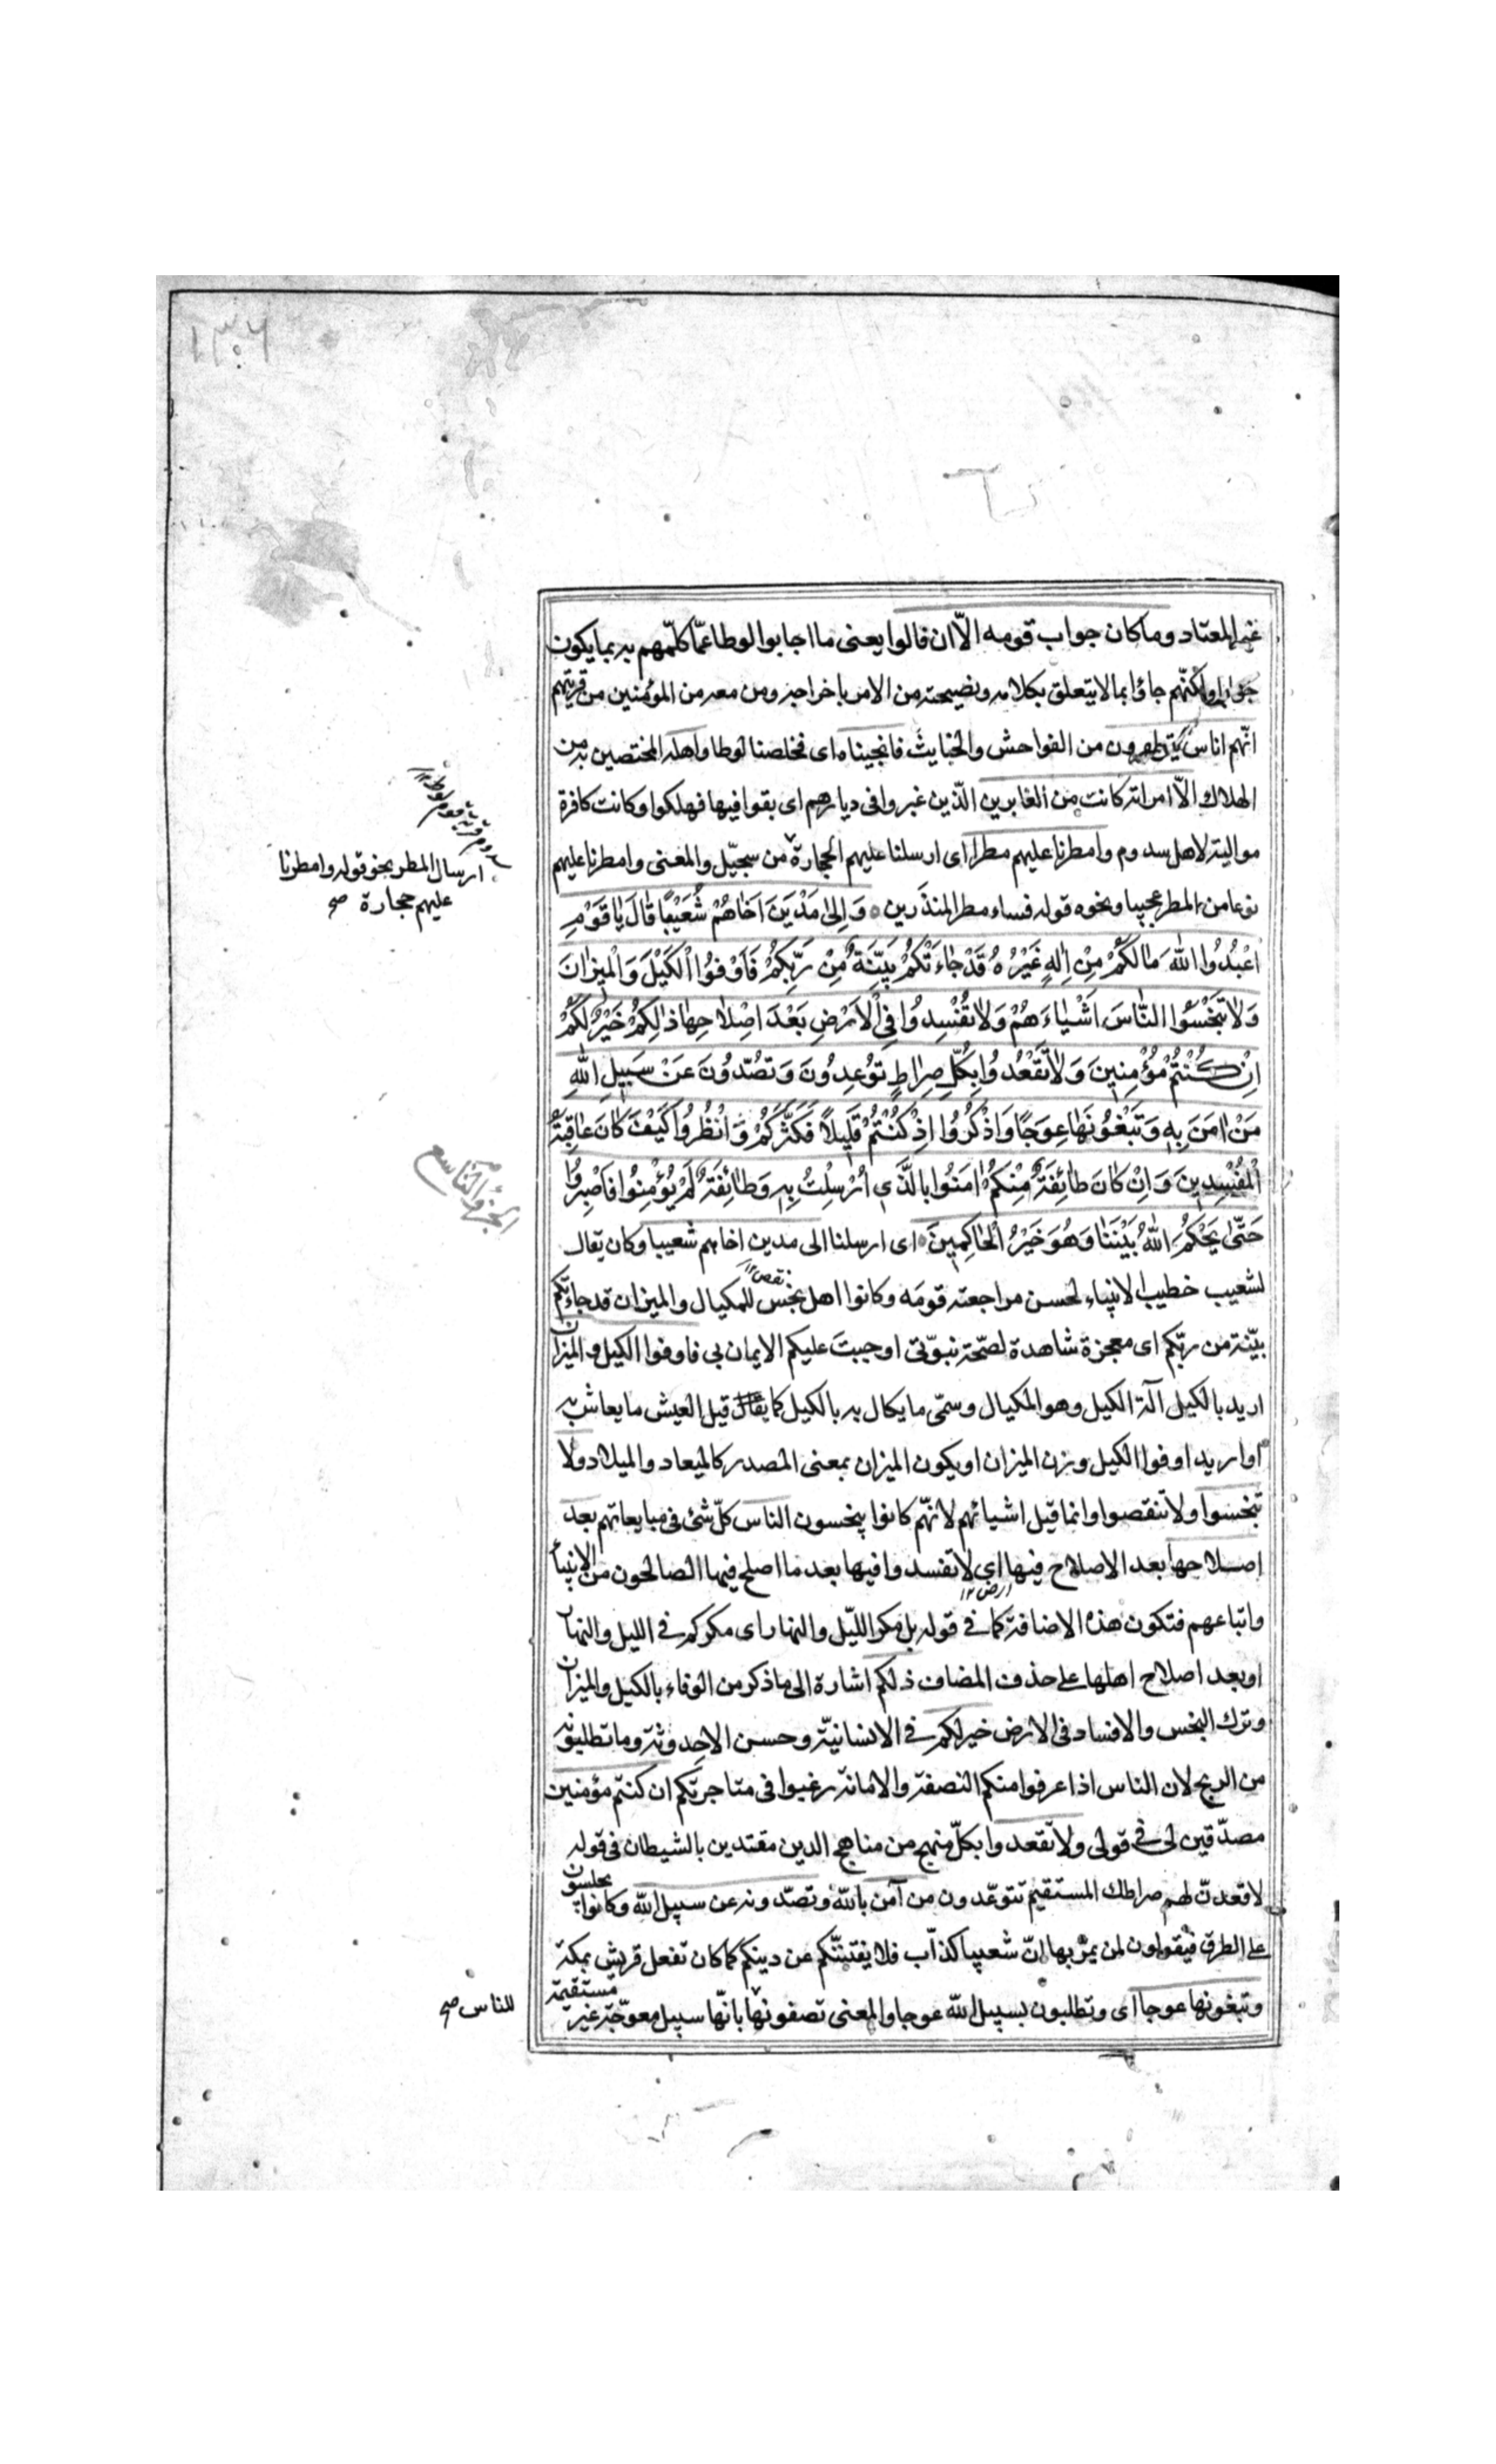 ١٣٠٦
غير المعتاد وماكان جواب قومه الاّ ان قالوا يعنى ما اجابوا لوطا عمّا كلّمهم به بما يكون
جوابا ولكنّهم جاؤا بما لا يتعلق بكلامه ونصيحته من الامر باخراجه ومن معه من المؤمنين من قريتهم
انّهم اناس يتطهرون من الفواحش والخبايث فانجيناه اى فخلصنا لوطا واهله المختصين به من
الهلاك الاّ امراته كانت من الغابرين الّذين غبروا فى ديارهم اى بقوا فيها فهلكوا وكانت كافرة
موالية لاهل سدوم وامطرنا عليهم مطرا اى ارسلنا عليهم الحجارة من سجيّل والمعنى وامطرنا عليهم
ارسال المطر نحو قوله وامطرنا
عليهم حجارة صح
نوعا من المطر عجيبا ونحوه قوله فساء مطر المنذرين وَاِلىٰ مَدْيَنَ اَخٰاهُمْ شُعَيْبًا قٰالَ يٰا قَوْمِ
اعْبُدُوا اللهَ مٰا لَكُمْ مِنْ اِلٰهٍ غَيْرُهُ قَدْ جٰاءَتْكُمْ بَيِّنَةٌ مِنْ رَبِّكُمْ فَاَوْفُوا الْكَيْلَ وَالْمِيزٰانَ
وَلاٰ تَبْخَسُوا النّٰاسَ اَشْيٰاءَهُمْ وَلاٰ تُفْسِدُوا فِى الْاَرْضِ بَعْدَ اِصْلاٰحِهٰا ذٰلِكُمْ خَيْرٌ لَكُمْ
اِنْ كُنْتُمْ مُؤْمِنِينَ وَلاٰ تَقْعُدُوا بِكُلِّ صِرٰاطٍ تُوعِدُونَ وَتَصُدُّونَ عَنْ سَبِيلِ اللهِ
مَنْ اٰمَنَ بِهِ وَتَبْغُونَهٰا عِوَجًا وَاذْكُرُوا اِذْ كُنْتُمْ قَلِيلاً فَكَثَّرَكُمْ وَانْظُرُوا كَيْفَ كٰانَ عٰاقِبَةُ
الجزؤ التاسع
الْمُفْسِدِينَ وَاِنْ كٰانَ طٰائِفَةٌ مِنْكُمْ اٰمَنُوا بِالَّذِى اُرْسِلْتُ بِهِ وَطٰائِفَةٌ لَمْ يُؤْمِنُوا فَاصْبِرُوا
حَتّٰى يَحْكُمَ اللهُ بَيْنَنٰا وَهُوَ خَيْرُ الْحٰاكِمِينَ اى ارسلنا الى مدين اخاهم شعيبا وكان يقال
لشعيب خطيب الانبياء لحسن مراجعته قومه وكانوا اهل بخس للمكيال والميزان قد جاءتكم
نقص١٢
بيّنة من ربّكم اى معجزة شاهدة لصحّة نبوّتى اوجبت عليكم الايمان بى فاوفوا الكيل والميزان
اريد بالكيل آلة الكيل وهو المكيال وسمّى ما يكال به بالكيل كما قيل العيش ما يعاش به
او اريد اوفوا الكيل وزن الميزان او يكون الميزان بمعنى المصدر كالميعاد والميلاد ولا
تبخسوا ولا تنقصوا وانما قيل اشيائهم لانّهم كانوا يبخسون الناس كلّ شئ فى مبايعاتهم بعد
اصلاحها بعد الاصلاح فيها اى لا تفسدوا فيها بعد ما اصلح فيها الصالحون من الانبيأ
ارض١٢
واتباعهم فتكون هذه الاضافة كما فى قوله بل مكر اللّيل والنهار اى مكركم فى الليل والنهار
او بعد اصلاح اهلها على حذف المضاف ذلكم اشارة الى ما ذكر من الوفاء بالكيل والميزان
وترك البخس والافساد فى الارض خير لكم فى الانسانيّة وحسن الاحدوثة وما تطلبونه
من الربح لان الناس اذا عرفوا منكم النصفة والامانة رغبوا فى متاجرتكم ان كنتم مؤمنين
مصدّقين لى فى قولى ولا تقعدوا بكلّ منهج من مناهج الدين مقتدين بالشيطان فى قوله
لاقعدنّ لهم صراطك المستقيم تتوعّدون من آمن بالله وتصدّونه عن سبيل الله وكانوا يجلسون
على الطرق فيقولون لمن يمرّ بها انّ شعيبا كذّاب فلا يفتننّكم عن دينكم كما كان تفعل قريش بمكة
وتبغونها عوجا اى وتطلبون لسبيل الله عوجا والمعنى تصفونها بانّها سبيل معوّجة غير مستقيمة
للناس صح